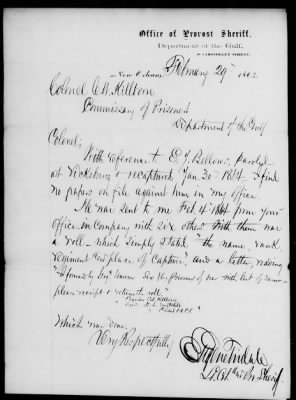 Office of Provost Sheriff,
Department of the Gulf,
New Orleans, February 29" 186
Colonel C. W. Killborn
Commissary of Prisoners
Department of the Gulf
Colonel;
With reference to E. J. Bellows, paroled
at Vicksburg & recaptured Jan 30 I find
no papers on file against him in my office.
He was sent to me Feb 4 from your
office in Company with six others. With them was
a roll which simply stated "the name, rank
Regiment & place of Capture", and a letter reading
with list of names
please receipt & return the roll."
Which was done.
Very Respectfully